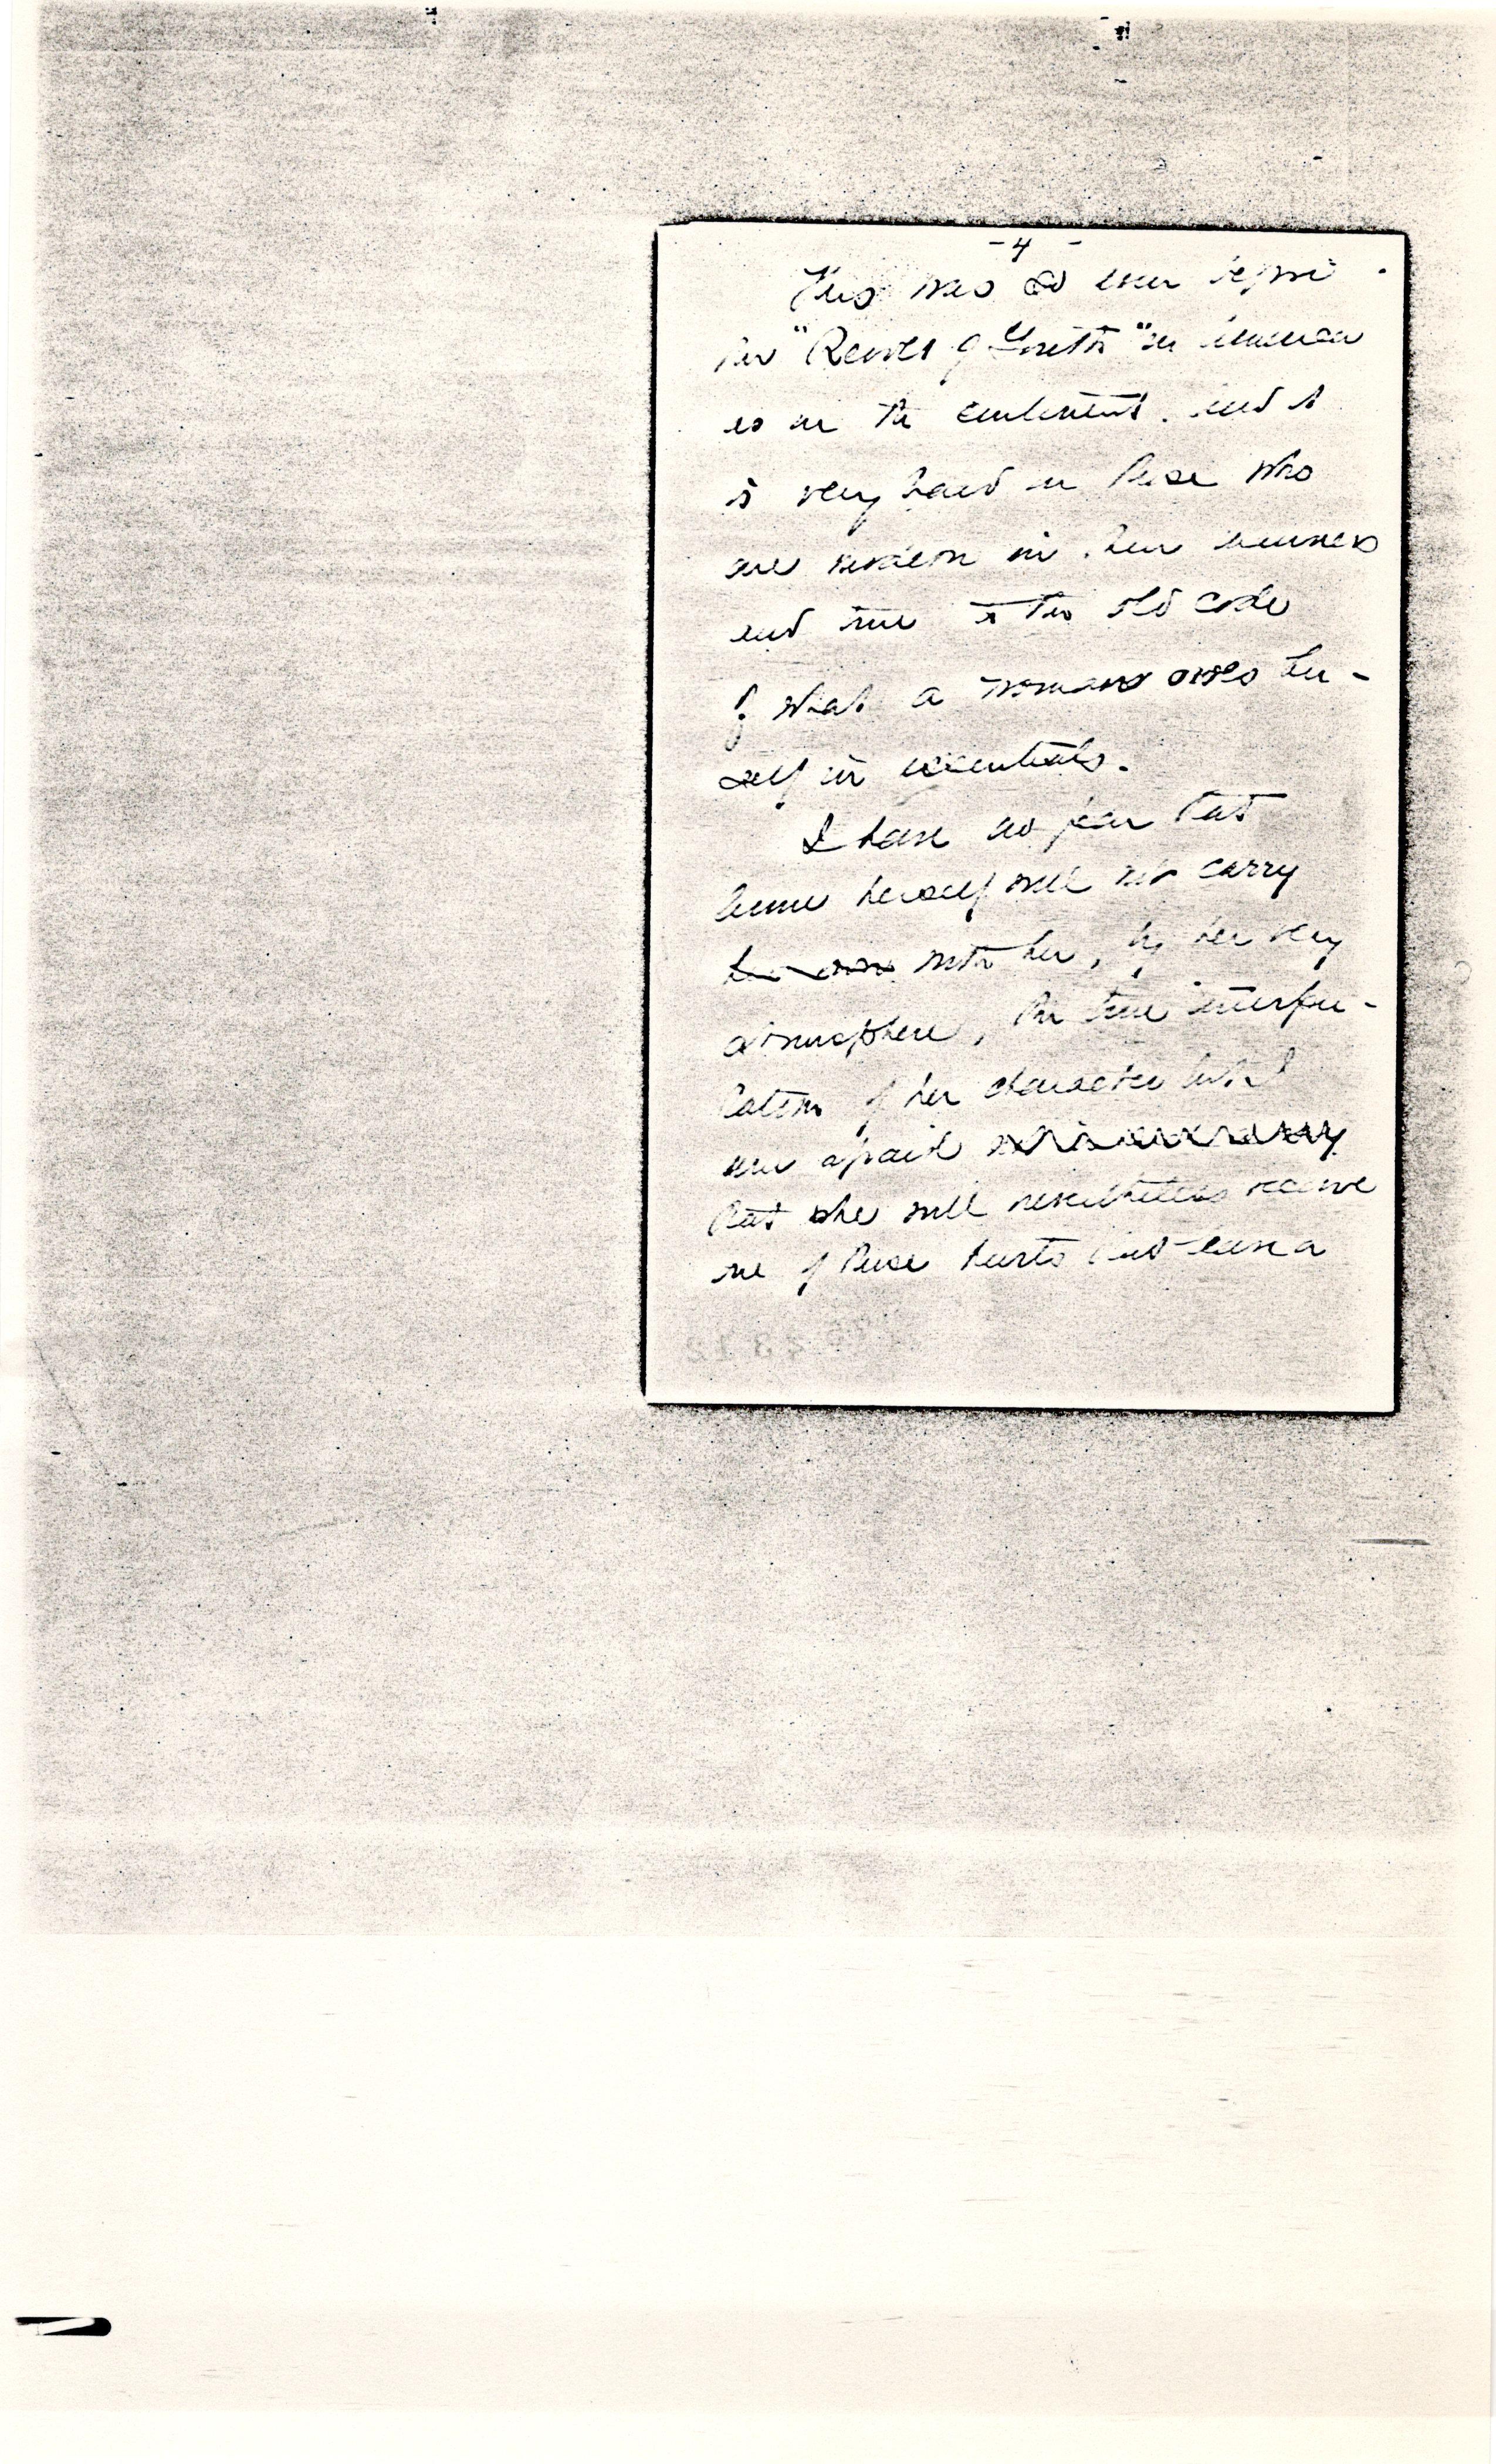 - 4 -
This was so even before
the "Revolt of Youth" in America
as on the continent. and it
is very hard on those who
are modern in their manners
and true to the old code
of what a woman owes her-
self in essentials.
I have no fear that
Anne herself will not carry
with her, by her very
atmosphere, the true interpre-
tation of her character but I
am afraid
that she will nevertheless receive
one of those hurts that leave a